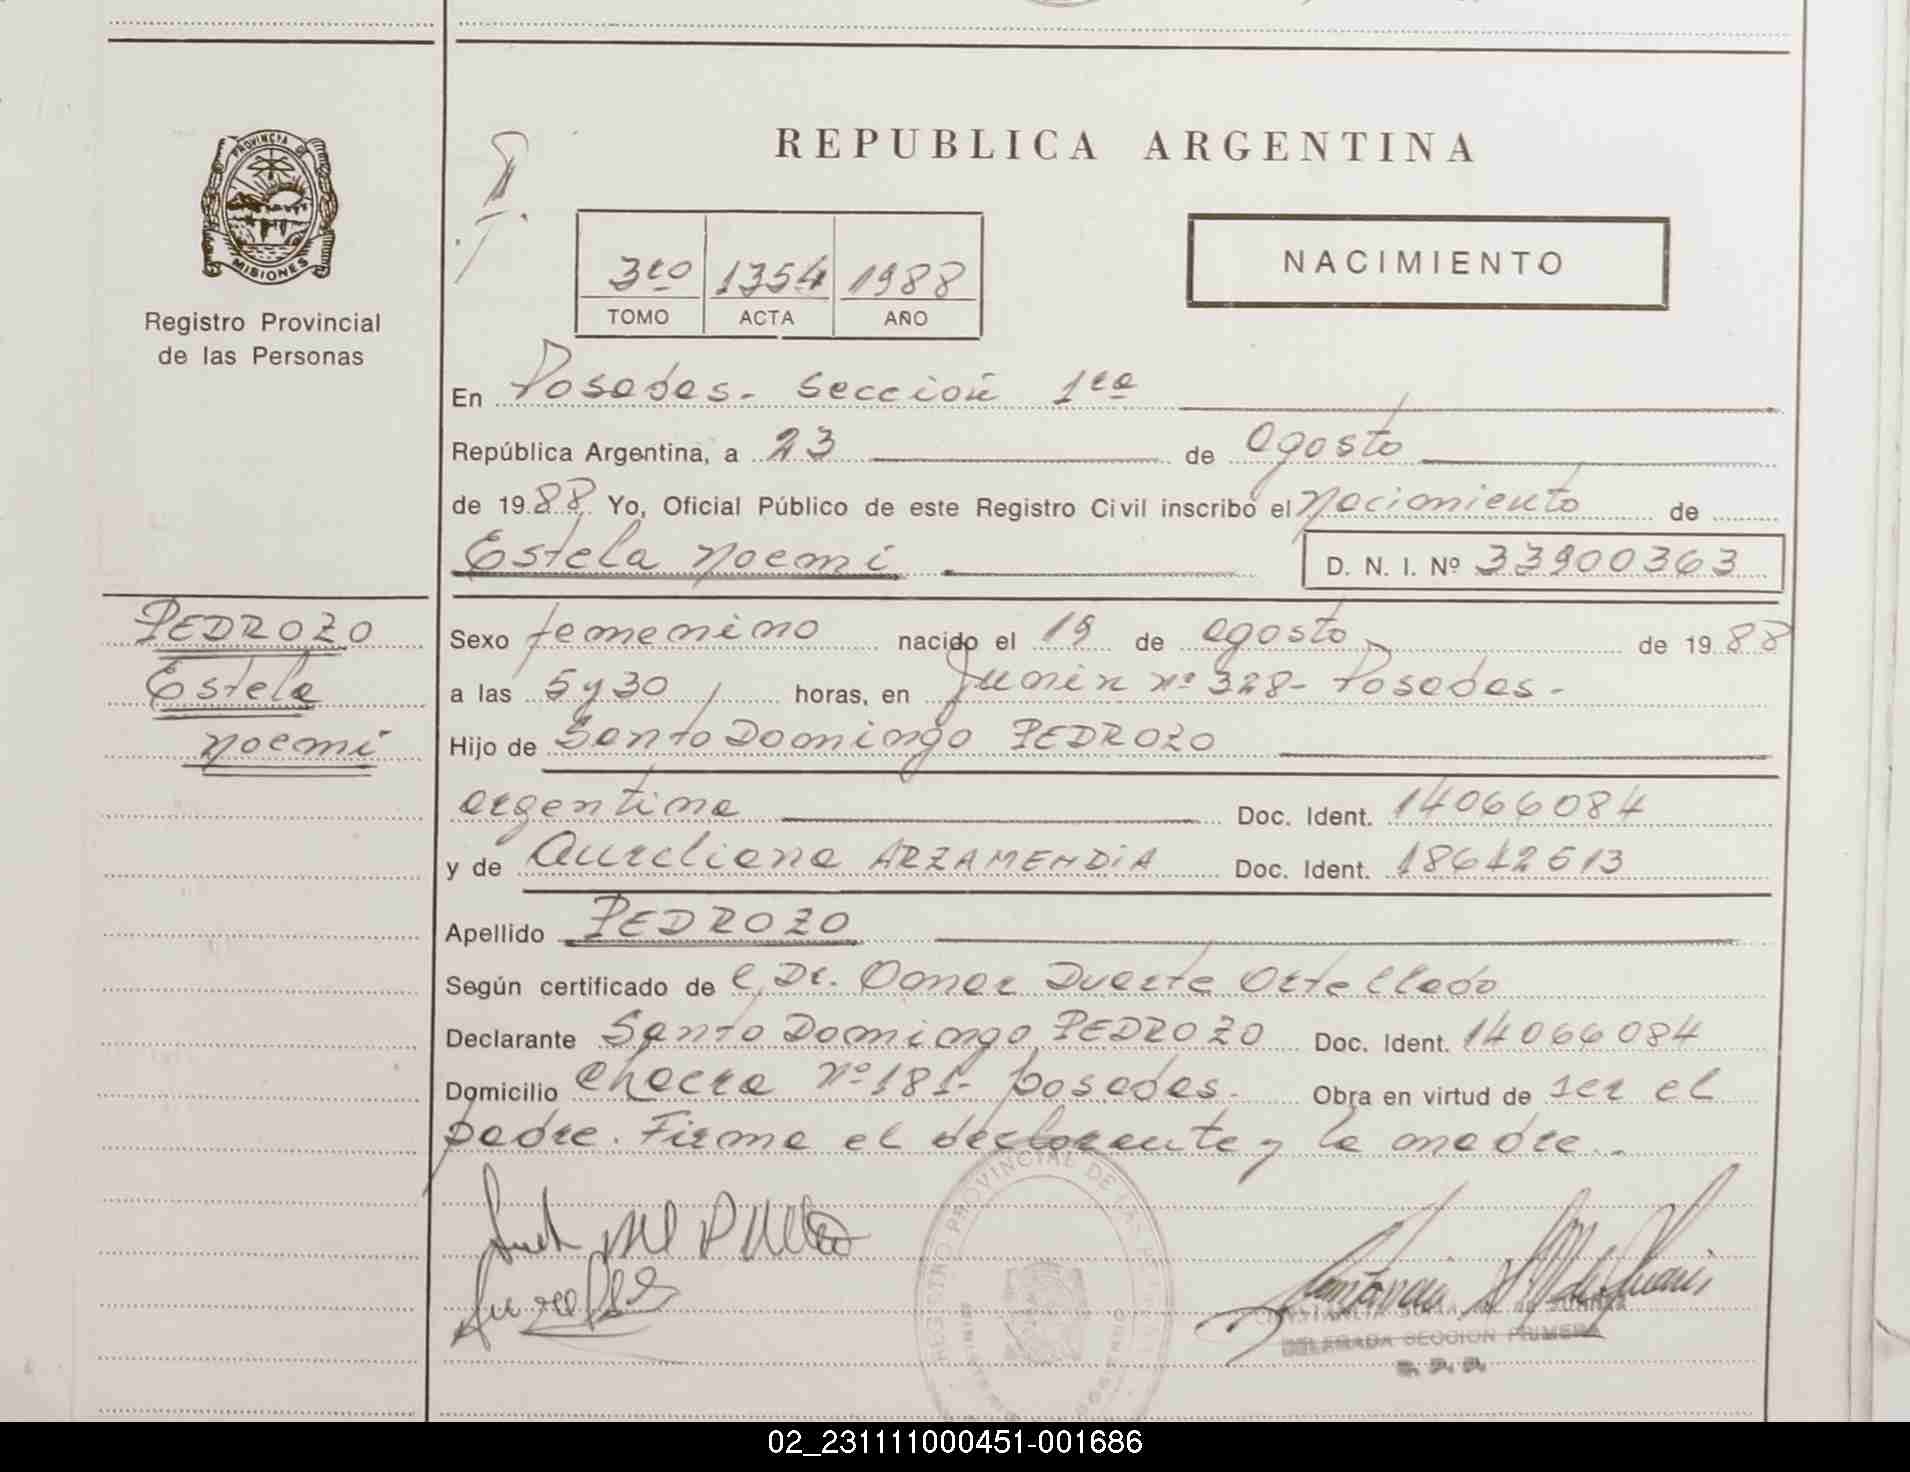 REPUBLICA ARGENTINA
PROVINCIA DE
MISIONES
Registro Provincial
de las Personas
3ro 1354 1988
TOMO ACTA AÑO
NACIMIENTO
En Posadas - Sección 1ra
República Argentina, a 23 de agosto
de 1988 Yo, Oficial Público de este Registro Civil inscribo el Nacimiento de
Estela Noemi D. N. I. Nº 33900363
PEDROZO
Estela
Noemi
Sexo femenino nacido el 19 de agosto de 1988
a las 5 y 30 horas, en Junin nº 328 - Posadas -
Hijo de Santo Domingo PEDROZO
argentina Doc. Ident. 14066084
y de Aureliana ARZAMENDIA Doc. Ident. 18612513
Apellido PEDROZO
Según certificado de l Dr. Omar Duarte Ortellado
Declarante Santo Domingo PEDROZO Doc. Ident. 14066084
Domicilio Chacra nº 181 - posadas - Obra en virtud de ser el
padre. Firma el declarante y la madre..
REGISTRO PROVINCIAL DE LAS
DELEGADA SECCION PRIMERA
R. P. P.
02_231111000451-001686